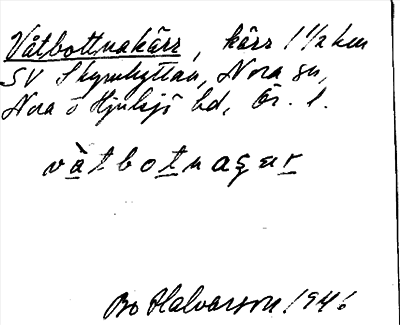 Våtbottnakärr, kärr 1 1/2 km
SV Skymhyttan, Nora sn,
Nora o Hjulsjö bd, Ör. l.
vàtbotnaçær
Bo Halvarson 1946